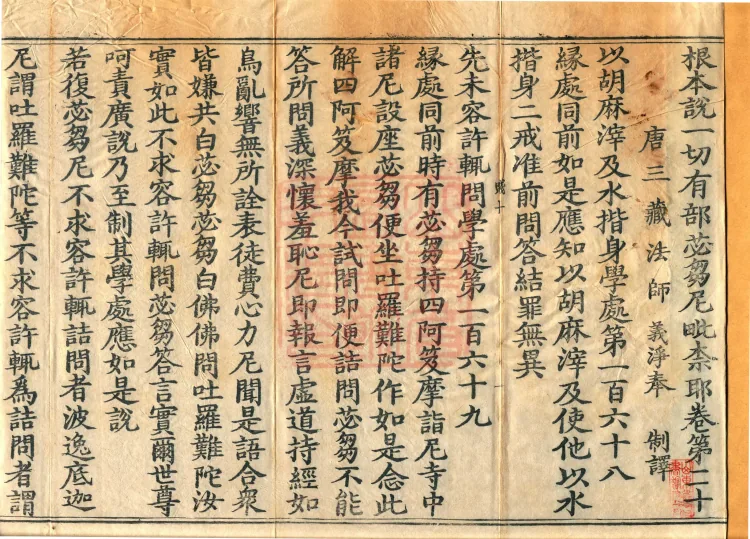 根本說一切有部苾芻尼毗柰耶卷第二十
唐三藏法師 義淨奉 制譯
以胡麻滓及水揩身學處第一百六十八
緣處同前如是應知以胡麻滓及使他以水
揩身二戒准前問答結罪無異
先未容許輒問學處第一百六十九
緣處同前時有苾芻持四阿笈摩詣尼寺中
諸尼設座苾芻便坐吐羅難陀作如是念此
解四阿笈摩我今試問即便詰問苾芻不能
答所問義深懷羞恥尼即報言虛道持經如
烏亂響無所詮表徒費心力尼聞是語合衆
皆嫌共白苾芻苾芻白佛佛問吐羅難陀汝
實如此不求容許輒問苾芻答言實爾世尊
呵責廣說乃至制其學處應如是說
若復苾芻尼不求容許輒詰問者波逸底迦
尼謂吐羅難陀等不求容許輒爲詰問者謂